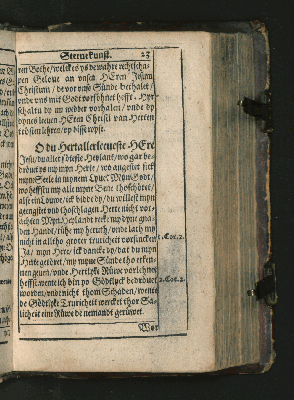 Sternekunst. 23
ren Bothe/ welckes ys de wahre rechtscha-
pen Gelove an unsen HEren Jesum
Christum/ de vor unse Sünde
unde uns mit Godt vorsönet hefft. Hyr
schaltu dy nu wedder vorhalen/ unde dy
dynes leven HEren Christi van Herten
trösten lehren/ up disse wyse.
O du Hertallerleveste HEre
Jesu/ du aller söteste Heylant/ wo gar be-
dröuet ys my myn Herte/ wo
myn Seele in mynem Lyve: Myn Godt/
wo heffstu my alle myne Bene thoschöret/
alse eine Louwe/ ick bidde dy/ du willest myn
geengstet unde thoschlagen Herte nicht vor-
achten Myn Heylandt recke my dyne gna-
den Handt/ före my heruth/ unde lath my
nicht in altho groter truricheit vorsincken
Ja/ myn Here/ ick dancke dy/ dat du myn
Herte geröret/ my myne Sünde tho erken-
nen geuen/ unde Hertlyke Rüwe vorlehnet
hefft. wente ick bin yo Gödtlyck bedröuet
worden/ unde nicht thom Schaden/ wente
de Gödtlyke Truricheit wercket thor Sa-
licheit eine Rüwe de nemandt gerüwet.
2. Cor. 2.
2. Cor. 2.
Wor